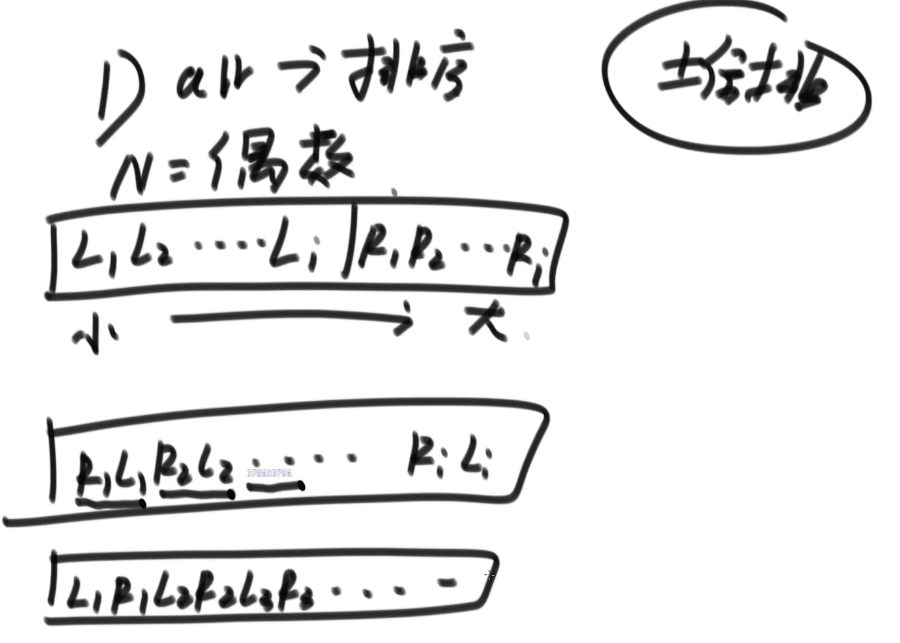 1) arr → 排序
N = 偶数
L₁ L₂ ····· Lᵢ R₁ R₂ ··· Rᵢ
小 → 大
R₁L₁ R₂L₂ ···· Rᵢ Lᵢ
L₁R₁L₂R₂L₃R₃ ···